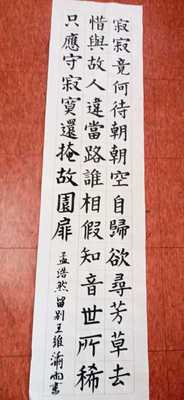 寂寂竟何待朝朝空自歸欲尋芳草去
惜與故人違當路誰相假知音世所稀
只應守寂寞還掩故園扉
孟浩然留別王維瀟雨書